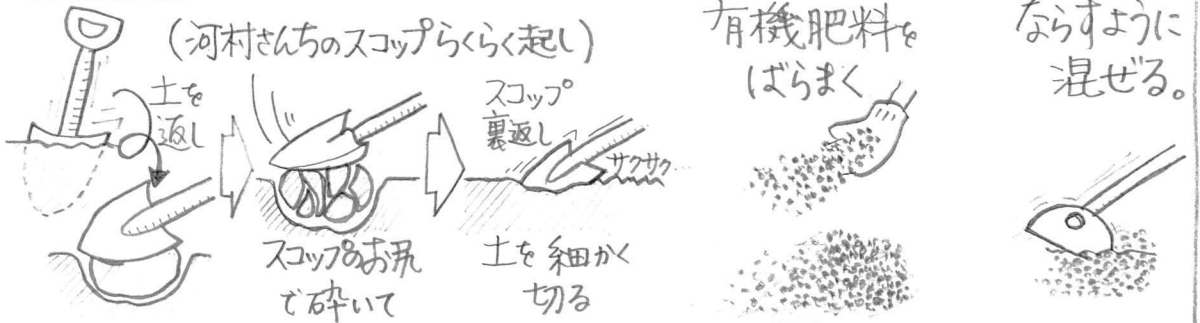 (河村さんちのスコップらくらく起し)
土を
返し
スコップのお尻
で砕いて
スコップ
裏返し
サクサク
土を細かく
切る
有機肥料を
ばらまく
ならすように
混ぜる。